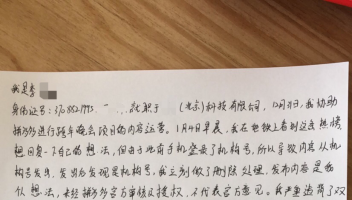 我是李
身份证号：370882199 就职于 （北京）科技有限公司，12月31日，我协助
拼多多进行跨年晚会项目的内容运营。1月4日早晨，我在地铁上看到这条热榜，
想回复一下自己的想法，但由于此前手机登录了机构号，所以导致内容从机
构号发出，发出后发现是机构号，我立刻做了删除处理，发布内容是我
个人想法，未经拼多多官方审核及授权，不代表官方意见。我严重违背了双